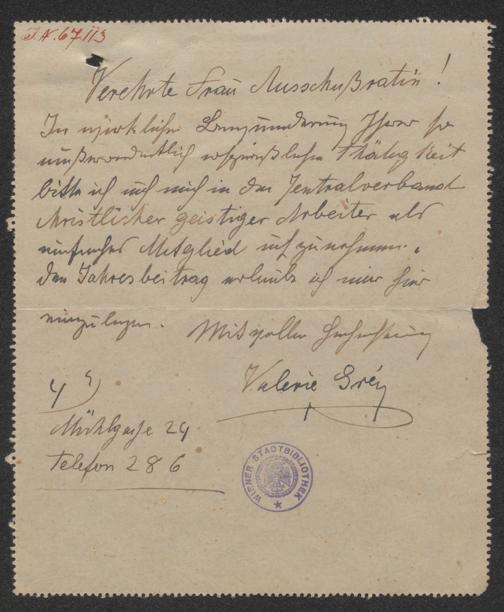 I.N. 67113
Verehrte Frau Ausschußratin!
In wirklicher Bewunderung Ihrer so
außerordentlich ersprießlichen Thätigkeit
bitte ich auch mich in den Zentralverband
christlicher geistiger Arbeiter als
einfaches Mitglied aufzunehmen.
Den Jahresbeitrag erlaube ich mir hier
einzulegen. Mit voller Hochachtung
Valerie Gréy
Mühlgasse 29
Telefon 286
WIENER STADTBIBLIOTHEK